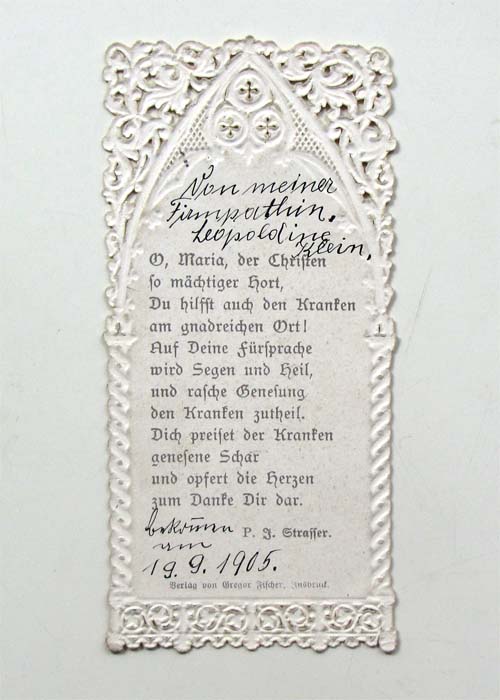 Von meiner
Firmpathin.
Leopoldine
Klein.
O, Maria, der Christen
so mächtiger Hort,
Du hilfst auch den Kranken
am gnadreichen Ort!
Auf Deine Fürsprache
wird Segen und Heil,
und rasche Genesung
den Kranken zutheil.
Dich preiset der Kranken
genesene Schar
und opfert die Herzen
zum Danke Dir dar.
P. J. Strasser.
bekom̄en
am
19. 9. 1905.
Verlag von Gregor Fischer, Innsbruck.